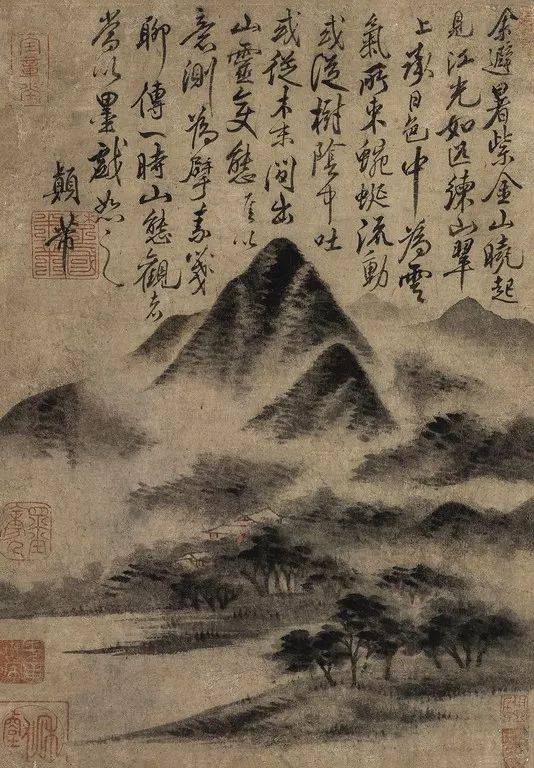 余避暑紫金山曉起
見江光如匹練山翠
上蒸日色中為雲
氣所束蜿蜒流動
或從樹陰中吐
或從木末間出
山靈變態以
意測為擘素箋
聊傳一時山態觀者
當以墨戲恕之
顛芾